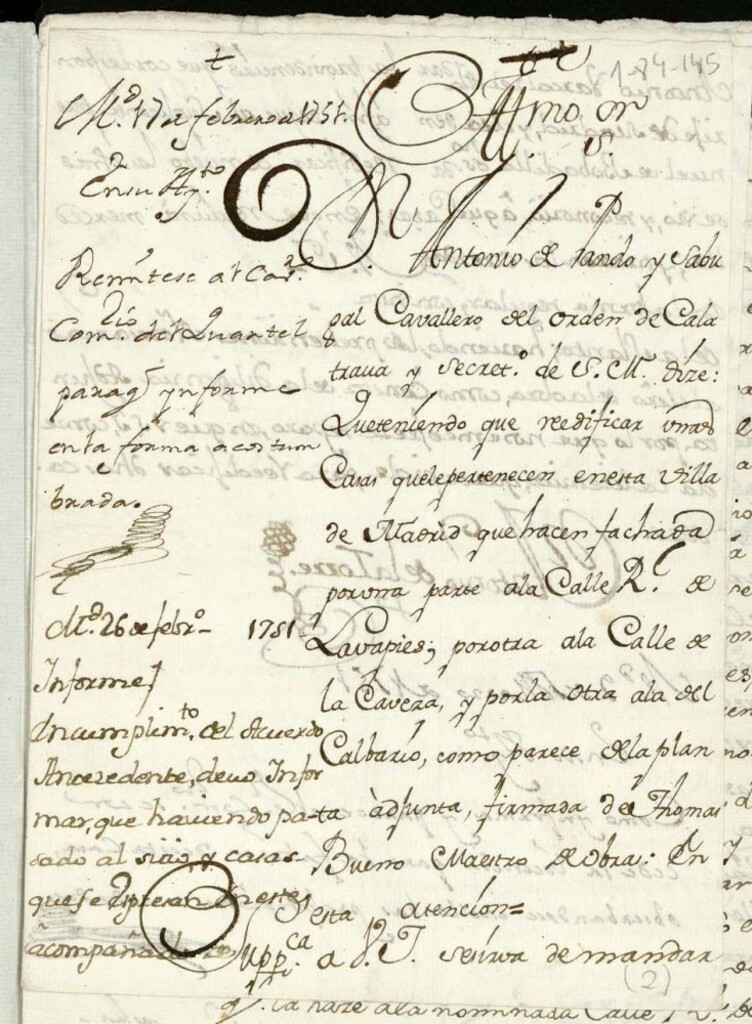 1-84-145
M.ᵈ 17 de febrero de 1751.
En su Ay.ᵗᵒ
Remítese al Cav.ʳᵒ
Com.ʳⁱᵒ del Quartel
para q̃ ynforme
en la forma acostum
brada.
M.ᵈ 26 de febr.º 1751
Informe
En cumplim.ᵗᵒ del Acuerdo
Antezedente, devo Infor
mar, que haviendo pa
sado al sitio, y casas
que se expresan en este
acompañado
Illmo Sʳ
Dⁿ Antonio de Pando y Sabu
gal Cavallero del orden de Cala
trava y Secret.º de S. M. dize:
Que teniendo que reedificar unas
Casas que le pertenecen en esta Villa
de Madrid que hacen fachada
por una parte a la Calle R.ˡ de
Lavapies; por otra a la Calle de
la Caveza, y por la otra a la del
Calbario, como parece de la plan
ta adjunta, firmada de Thomas
Bueno Maestro de Obra: En
esta atencion=
Supp.ᶜᵃ a V. I. se sirva de mandar
(2)
la haze a la nominada Calle